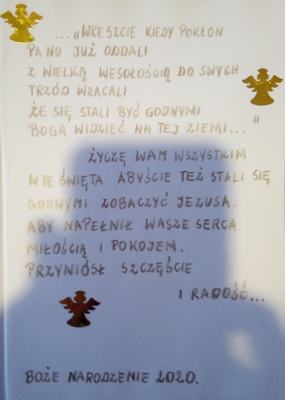 ..."WRESZCIE KIEDY POKŁON
PANU JUŻ ODDALI
Z WIELKĄ WESOŁOŚCIĄ DO SWYCH
TRZÓD WRACALI
ŻE SIĘ STALI BYĆ GODNYMI
BOGA WIDZIEĆ NA TEJ ZIEMI..."
ŻYCZĘ WAM WSZYSTKIM
W TE ŚWIĘTA ABYŚCIE TEŻ STALI SIĘ
GODNYMI ZOBACZYĆ JEZUSA.
ABY NAPEŁNIŁ WASZE SERCA
MIŁOŚCIĄ I POKOJEM.
PRZYNIÓSŁ SZCZĘŚCIE
I RADOŚĆ...
BOŻE NARODZENIE 2020.